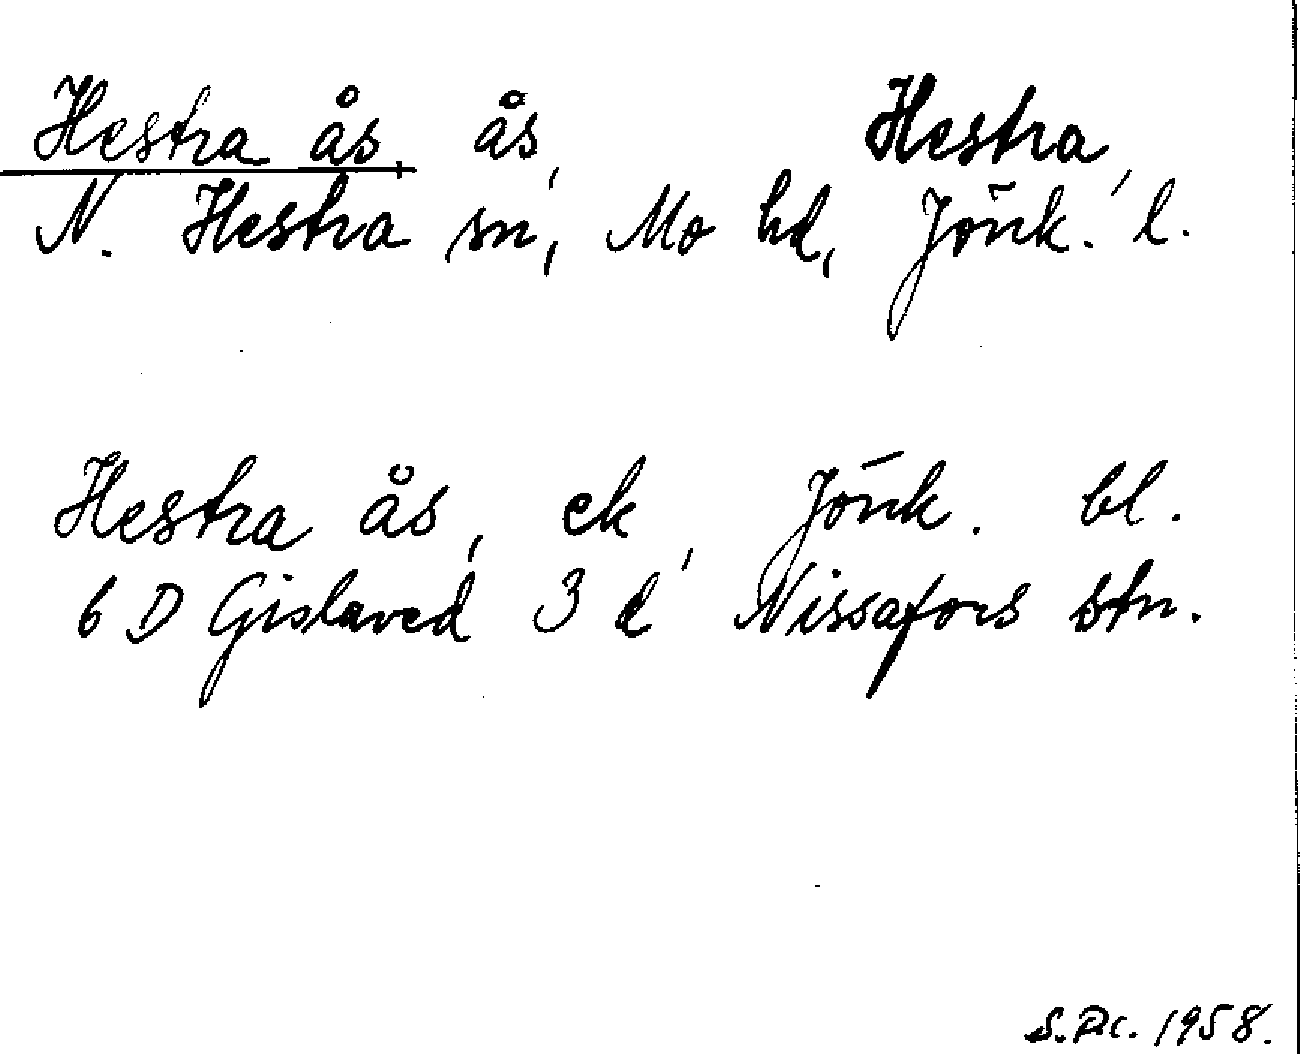 Hestra ås, ås, Hestra,
N. Hestra sn, Mo hd, Jönk. l.
Hestra ås, ek, Jönk. bl.
6 D Gislaved 3 d Nissafors stn.
1958.